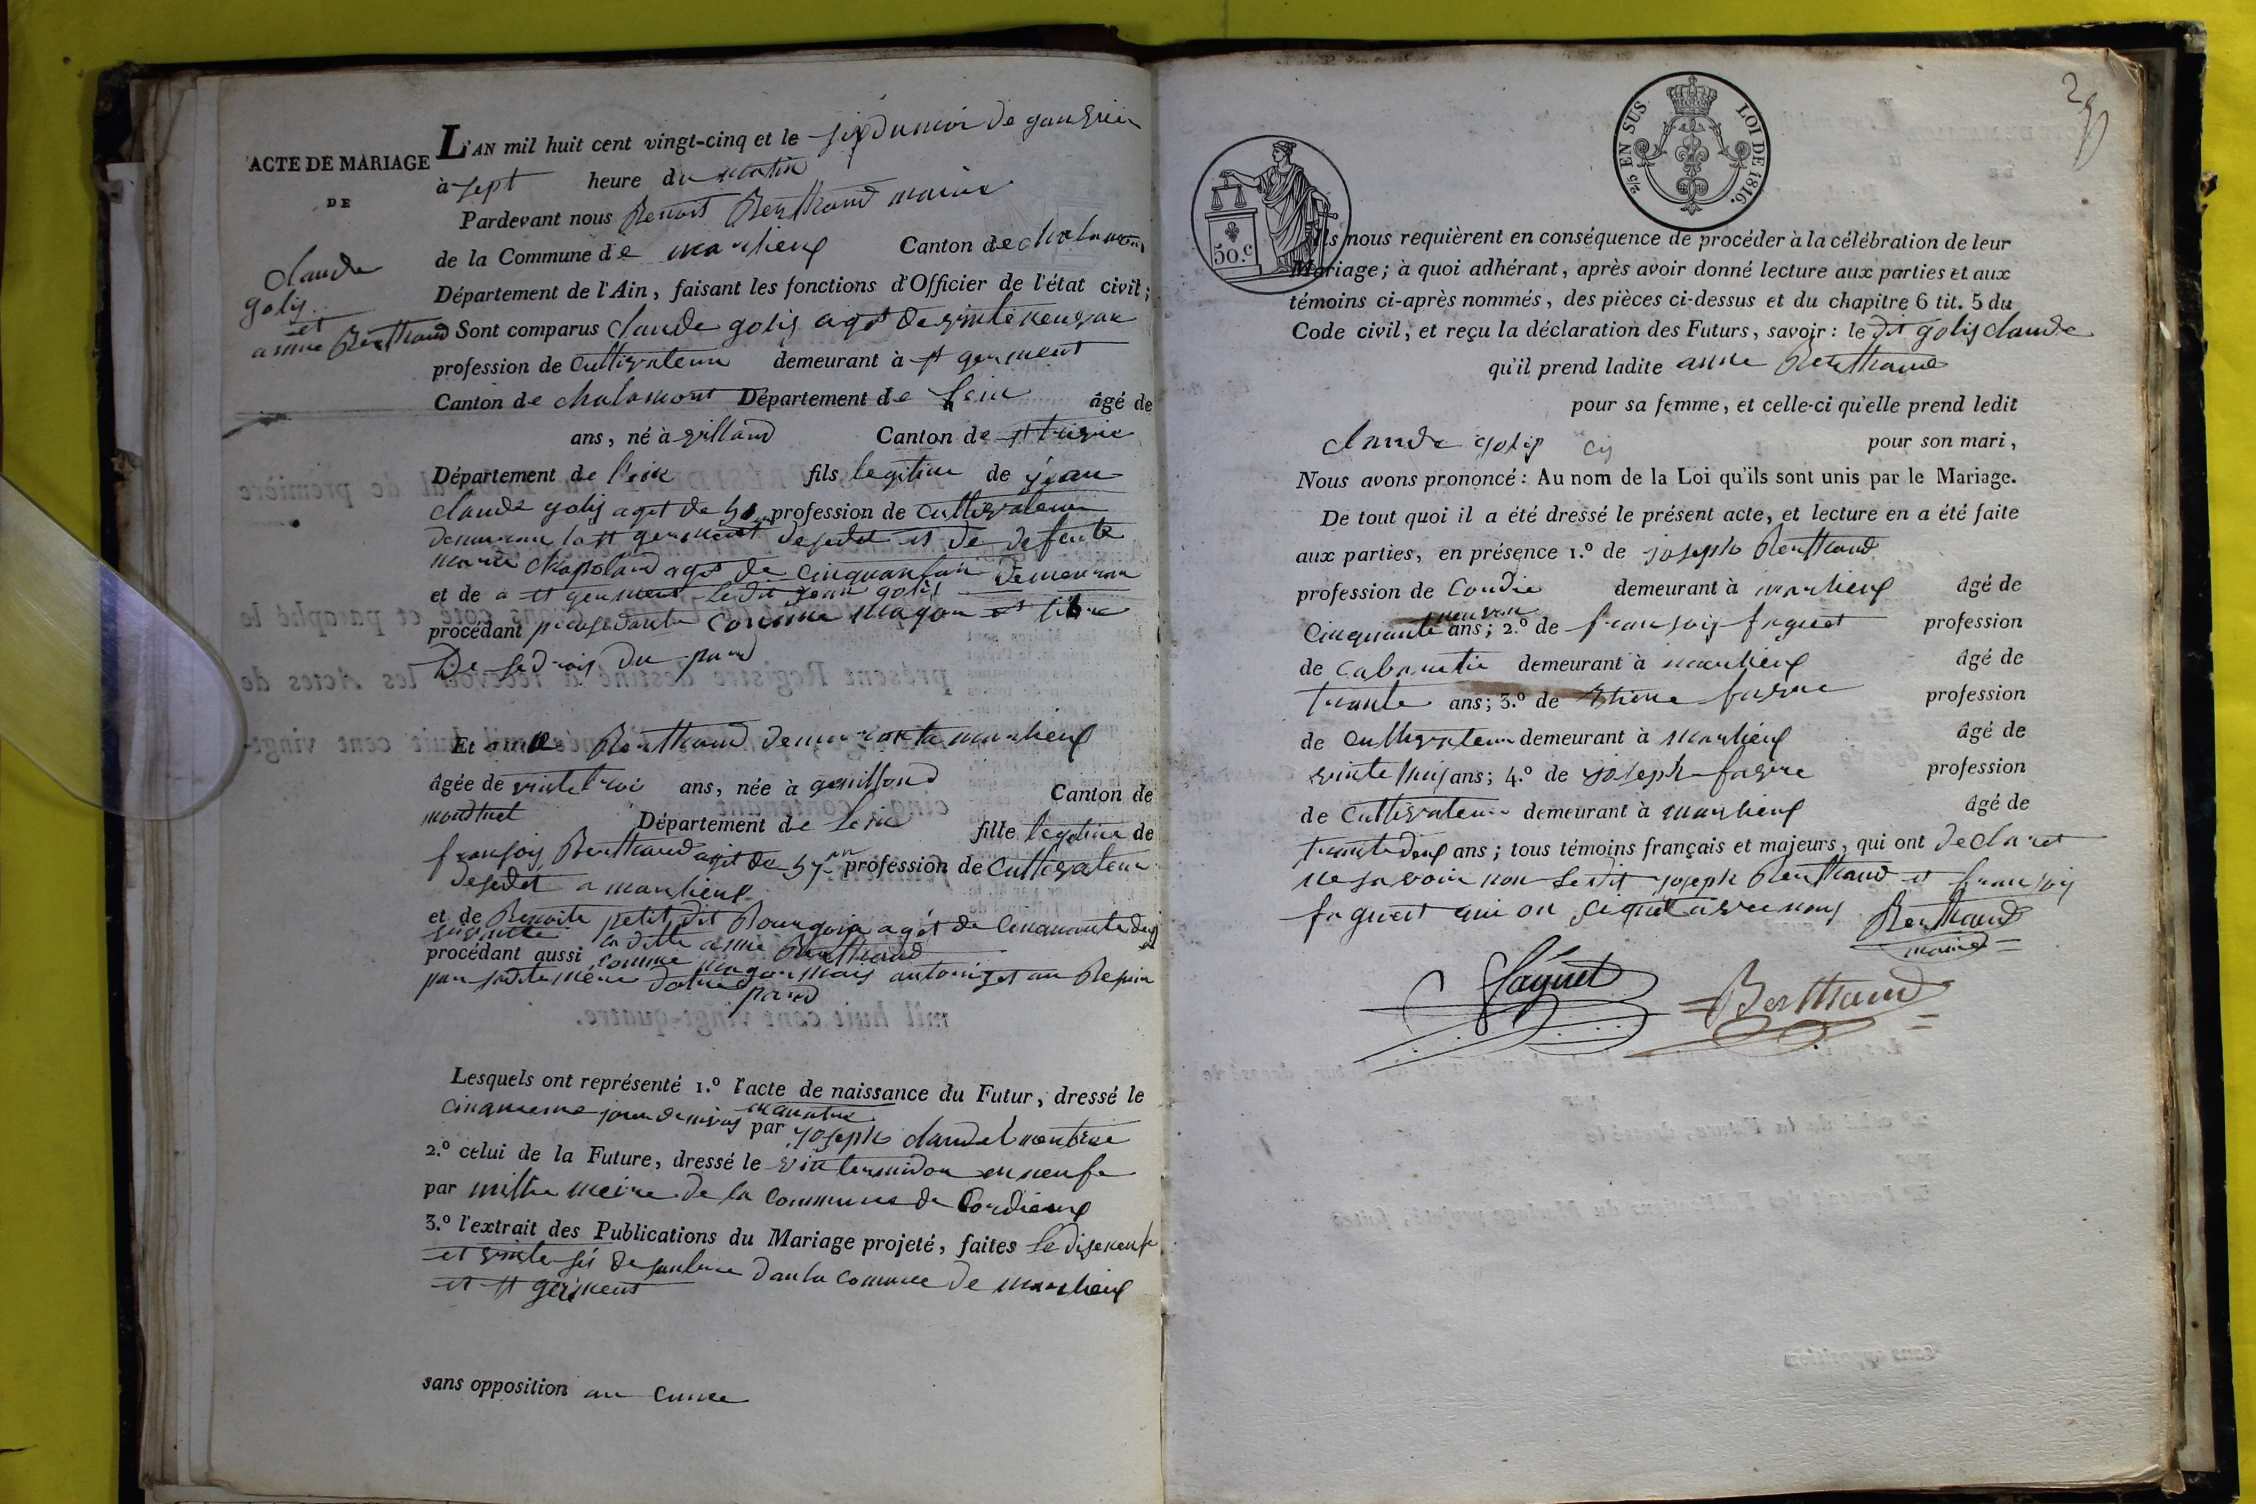 ACTE DE MARIAGE
DE
claude
golij
et
anne Berthaud
L'AN mil huit cent vingt-cinq et le six du moi de genvier
à sept heure du matin
Pardevant nous Benoit Berthaud maire
de la Commune de marlieux Canton de chalamon
Département de l'Ain, faisant les fonctions d'Officier de l'état civil;
Sont comparus claude golij agét de vinte neuvan
profession de Cultivateur demeurant à st germent
Canton de chalamont Département de Lein âgé de
ans, né à villard Canton de st trivie
Département de l'ein fils legitime de jean
claude golij aget de 51 profession de Cultivateur
demeuran la st germent desedet et de defente
marie Chapoland agét de cinquantan demeuran
et de a st germent ledit jean golij
procédant comme majeur et libre
De sedroij du pand
Et anne Berthaud demeuranta marlieux
âgée de vintetroi ans, née à Canton de
montluel Département de Lein fille legitime de
fransoij Berthaud aget de 57 an profession de Cultivateur
desedét a marlieux
et de Benoite petit dit Bourgoin agét de Cinquantedeux
procédant aussi comme la ditte anne Berthaud
majeur mais autorizet au Besoin
par sadite mére
Lesquels ont représenté 1.º l'acte de naissance du Futur, dressé le
cinquieme jour de nivos an quatre par joseph claude
2.º celui de la Future, dressé le vin termidor en neufe
par meire de la Commune de Cordieux
3.º l'extrait des Publications du Mariage projeté, faites Le diseneufe
et vinte sis de danla Commune de marlieux
et st germent
sans opposition au cunne
2
50.c
2/5 EN SUS. LOI DE 1816.
Ils nous requièrent en conséquence de procéder à la célébration de leur
Mariage; à quoi adhérant, après avoir donné lecture aux parties et aux
témoins ci-après nommés, des pièces ci-dessus et du chapitre 6 tit. 5 du
Code civil, et reçu la déclaration des Futurs, savoir: le dit golij claude
qu'il prend ladite anne Berthaud
pour sa femme, et celle-ci qu'elle prend ledit
claude golij pour son mari,
Nous avons prononcé: Au nom de la Loi qu'ils sont unis par le Mariage.
De tout quoi il a été dressé le présent acte, et lecture en a été faite
aux parties, en présence 1.º de joseph Berthaud
profession de demeurant à marlieux âgé de
Cinquante neuvan ans; 2.º de fransoij faguet profession
de Cabaretie demeurant à marlieux âgé de
trante ans; 3.º de Etiene favre profession
de Cultivateur demeurant à marlieux âgé de
vinte huij ans; 4.º de joseph favre profession
de Cultivateur demeurant à marlieux âgé de
trantedeux ans; tous témoins français et majeurs, qui ont declaret
ne savoir non Ledit joseph Berthaud et fransoij
faguet qui on signét avec nous Berthaud
maire
Faguet Berthaud